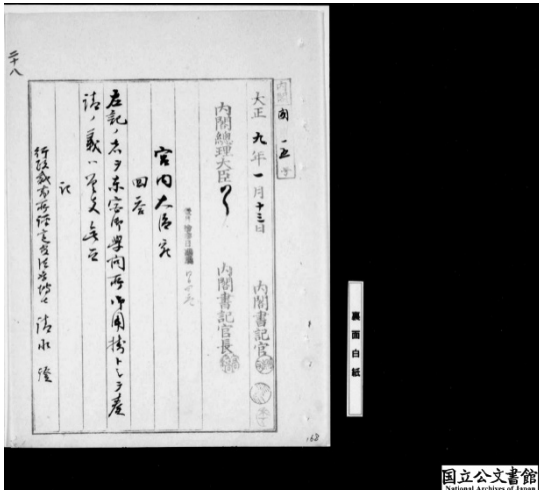 二十八
内閣
大正九年一月十三日
内閣書記官
内閣總理大臣
内閣書記官長
宮内大臣宛
回答
左記ノ者ヲ東宮御學問所御用掛トシテ
請ノ義ハ異存無之
記
行政裁判所評定官法学博士 清水 澄
168
裏面白紙
国立公文書館
National Archives of Japan